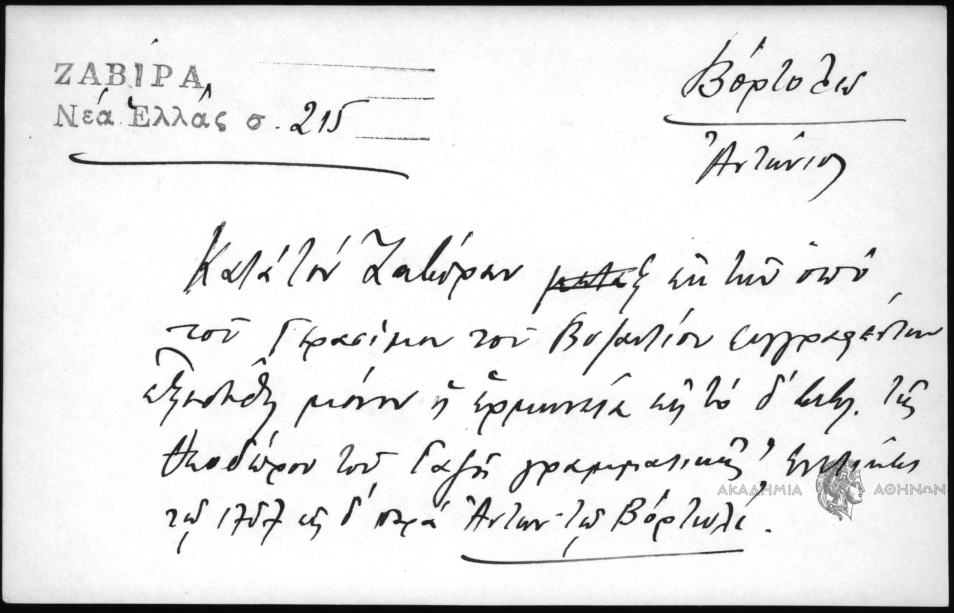 ΖΑΒΙΡΑ
Νέα Ἑλλάς σ. 215
Βόρτολις
Ἀντώνιος
Κατὰ τὸν Ζαβίραν ἐκ τῶν ὑπὸ
τοῦ Γερασίμου τοῦ Βυζαντίου συγγραφέντων
ἐξεδόθη μόνον ἡ ἑρμηνεία εἰς τὸ δ΄ τῆς
Θεοδώρου τοῦ Γαζῆ γραμματικῆς,
τῷ 1757 εἰς δ΄ παρὰ Ἀντων. τῷ Βόρτολι.
ΑΚΑΔΗΜΙΑ ΑΘΗΝΩΝ